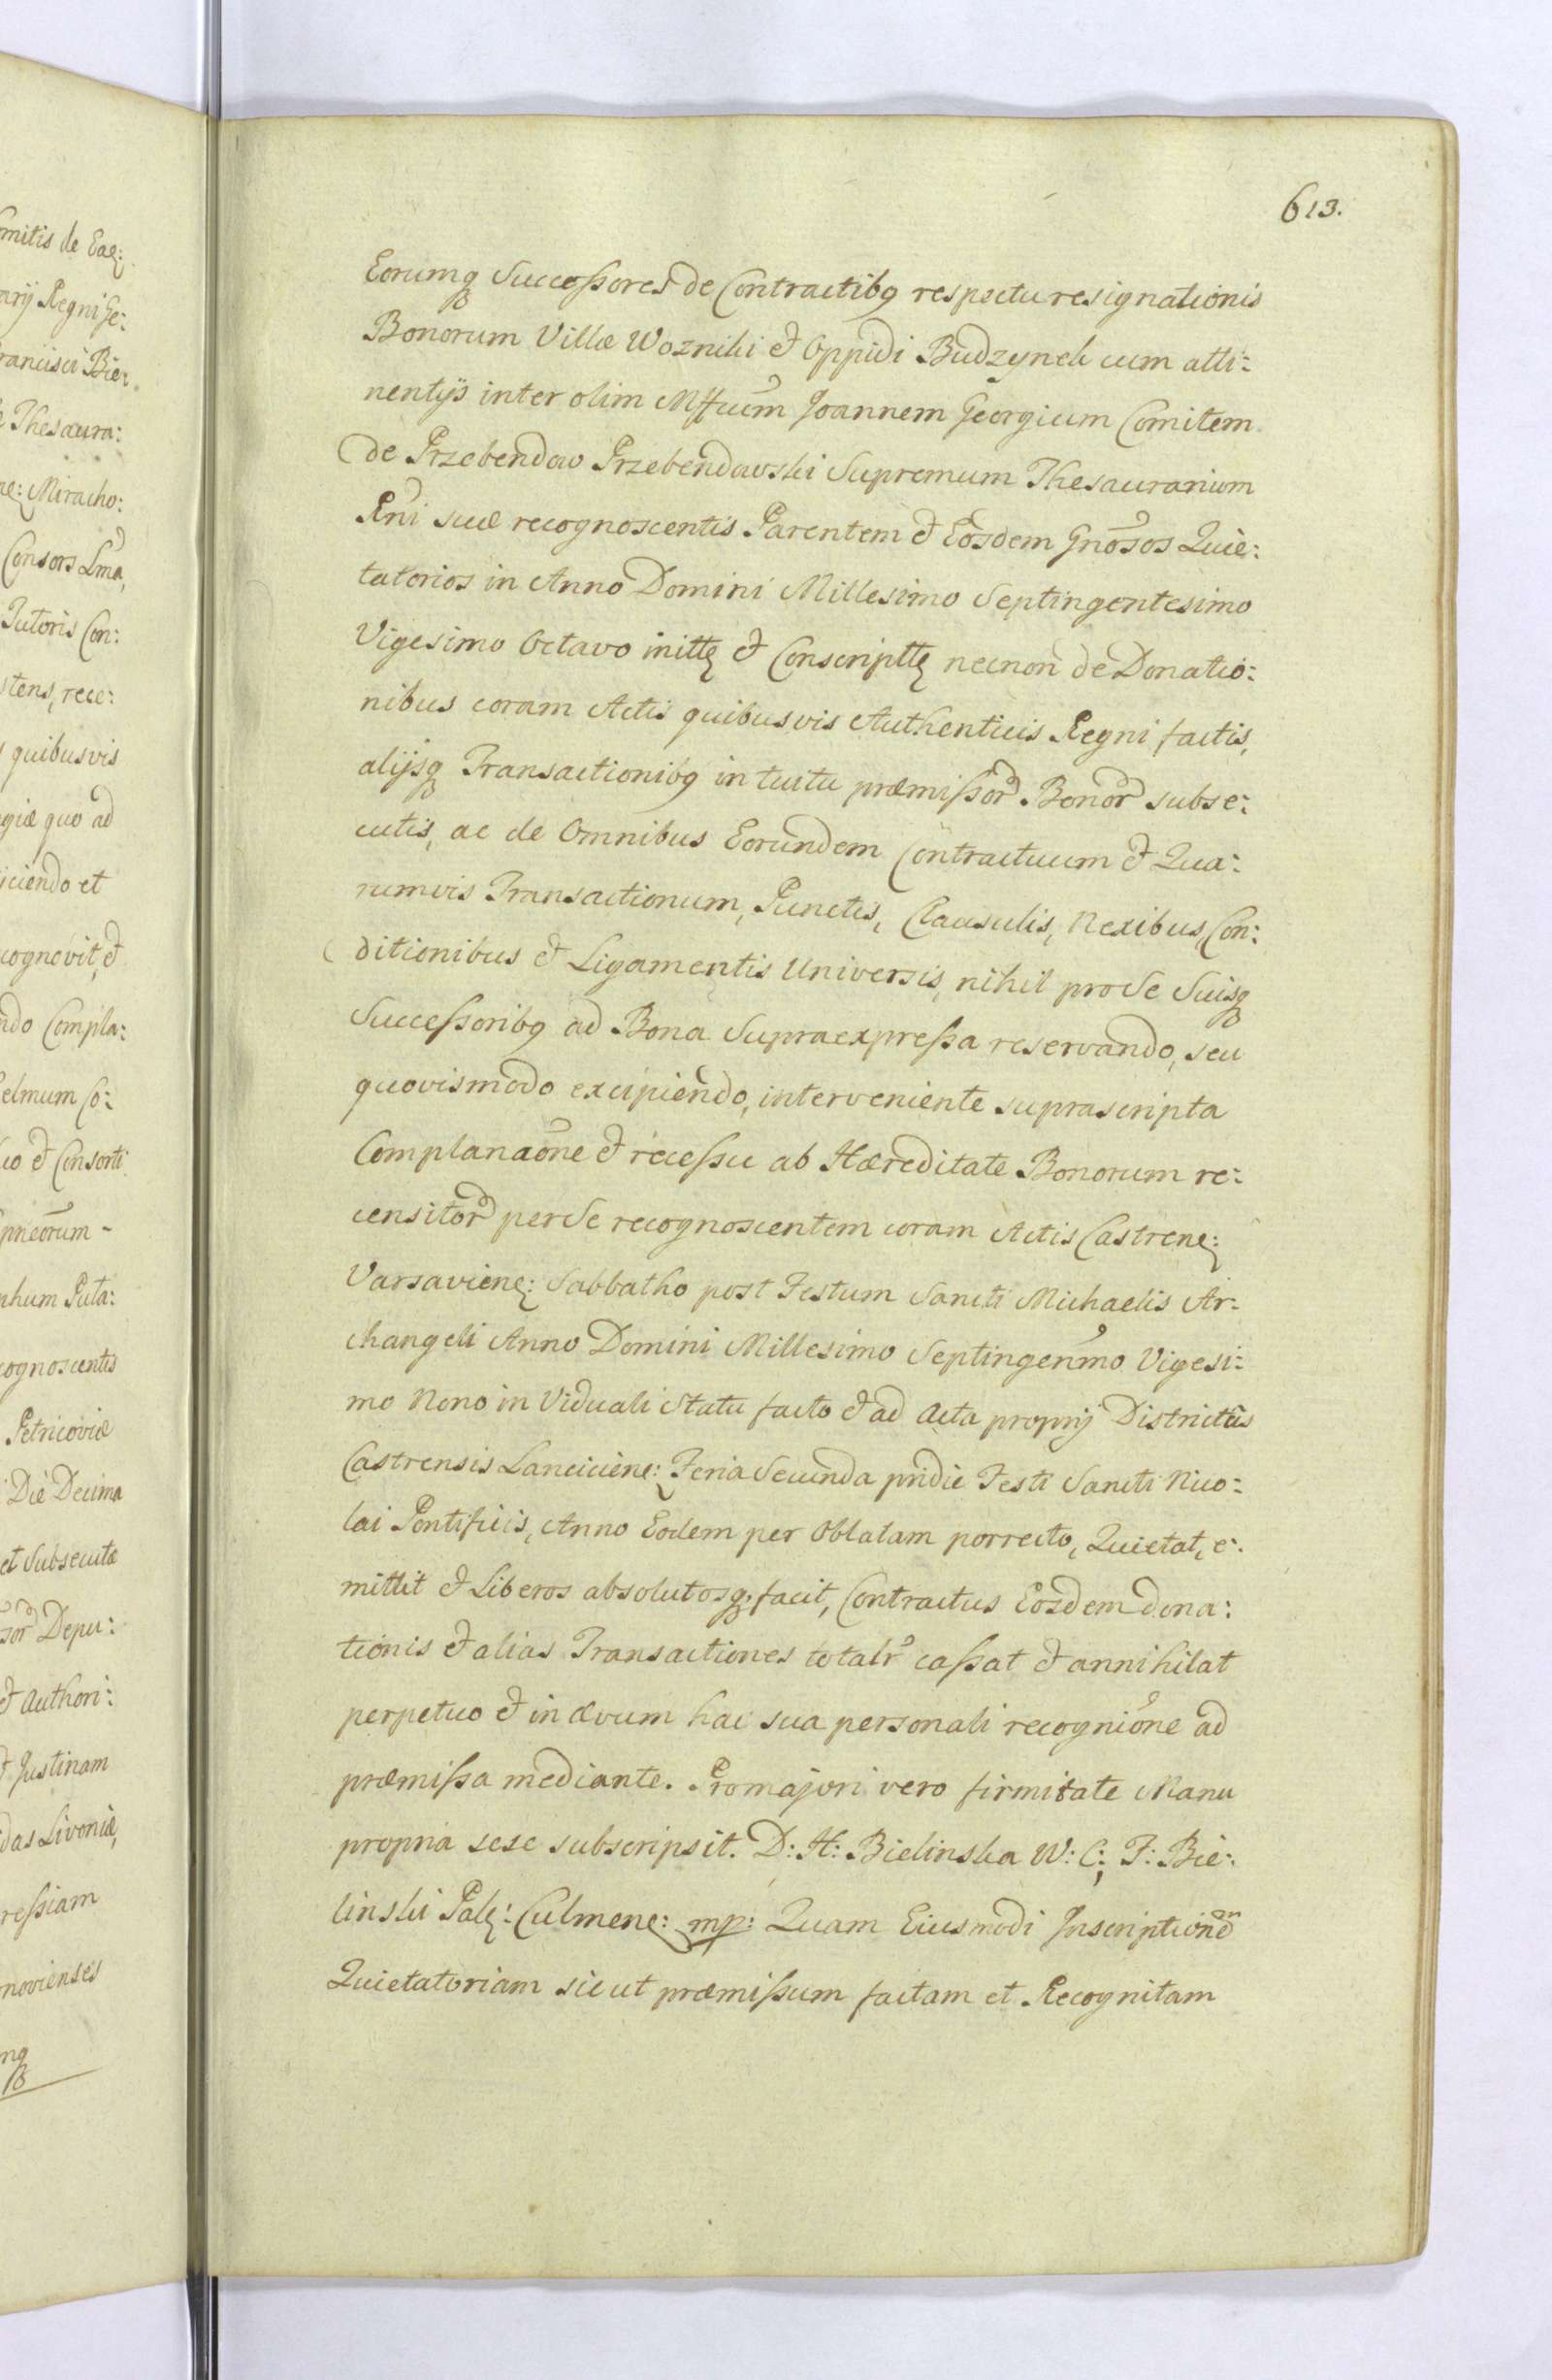 613.
Eorumq Successores de Contractibq respectu resignationis
Bonorum Villæ Wozniki et Oppidi Budzynek cum atti:
nentijs inter olim Mffcum Joannem Georgium Comitem
de Przebendow Przebendowski Supremum Thesaurarium
Rni suæ recognoscentis Parentem et Eosdem Gnosos Quie:
tatorios in Anno Domini Millesimo Septingentesimo
Vigesimo Octavo initis et Conscriptis necnon de Donatio:
nibus coram Actis quibusvis Authenticis Regni factis,
alijsq Transactionibq intuitu præmissor Bonor subse:
cutis, ac de Omnibus Eorundem Contractuum et Qua:
rumvis Transactionum, Punctis, Clausulis, Nexibus, Con:
ditionibus et Ligamentis Universis, nihil pro Se Suisq
Successoribq ad Bona Supraexpressa reservando, seu
quovismodo excipiendo, interveniente suprascripta
Complanaone et recessu ab Hæreditate Bonorum re:
censitor per Se recognoscentem coram Actis Castrene:
Varsaviene: Sabbatho post Festum Sancti Michaelis Ar:
changeli Anno Domini Millesimo Septingenmo Vigesi:
mo Nono in Viduali Statu facto et ad Acta proprij Districtûs
Castrensis Lanciciene: Feria Secunda pridie Festi Sancti Nico:
lai Pontificis, Anno Eodem per Oblatam porrecto, Quietat, e:
mittit et Liberos absolutosq facit, Contractus Eosdem dona:
tionis et alias Transactiones totalr cassat et annihilat
perpetuo et in ævum hac sua personali recognione ad
præmissa mediante. Pro majori vero firmitate Manu
propria sese subscripsit. D: H: Bielinska W: C; F: Bie:
linski Pale: Culmene: mp: Quam Eiusmodi Inscriptionem
Quietatoriam sicut præmissum factam et Recognitam
mitis de Eae:
arij Regni Ge:
rancisci Bie:
Thesaura:
ne: Miracho:
Consors Lma,
Tutoris Con:
stens, reco:
quibusvis
giæ quo ad
iciendo et
cognovit, et
ndo Compla:
elmum Co:
co et Consorti
pneorum -
nhum Puta:
cognoscentis
Petricoviæ
Die Decima
et Subsecutæ
sor Depu:
et Authori:
et Justinam
das Livoniæ,
ressiam
novienses